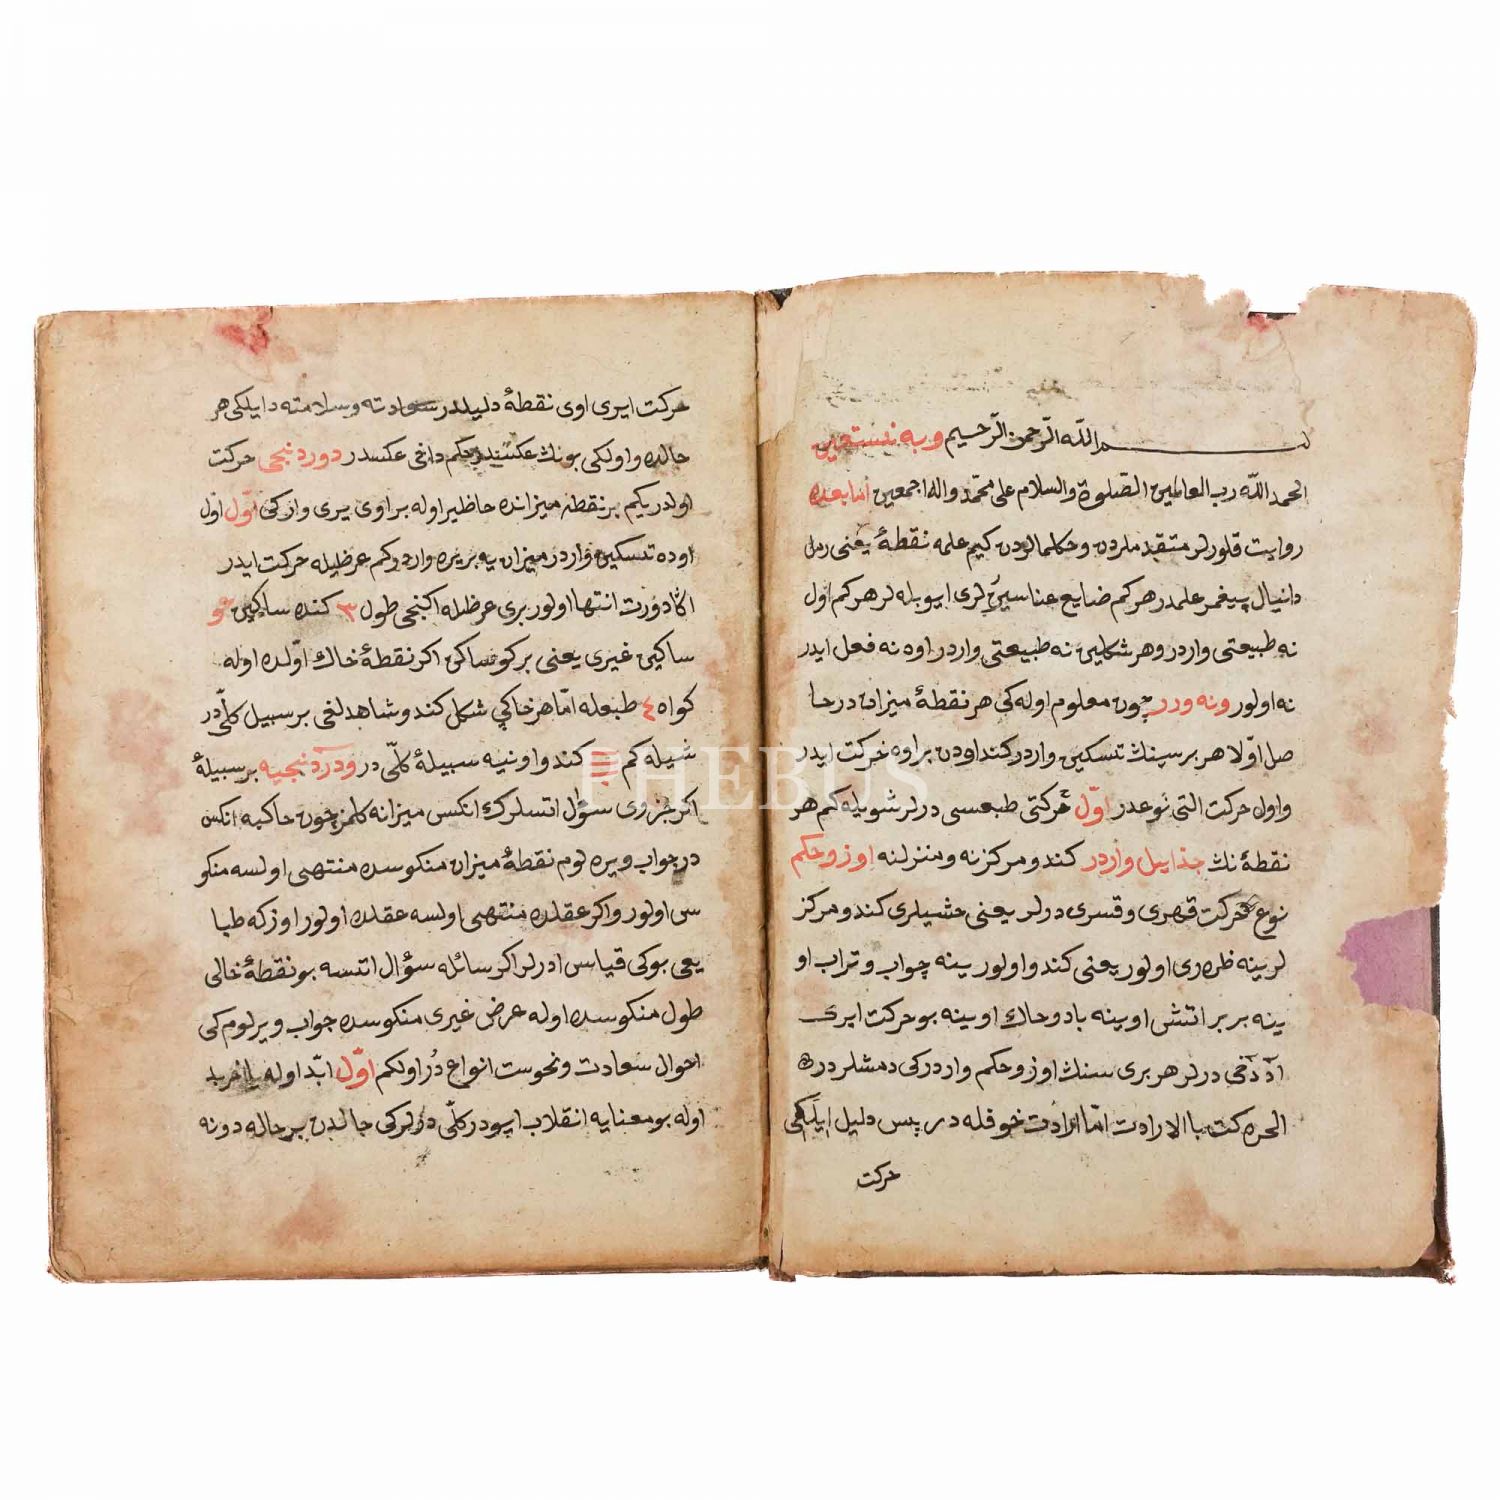 بسم الله الرّحمن الرّحيم وبه نستعين
الحمد الله رب العالمين الصّلوة والسلام على محمّد واله اجمعين امابعده
روايت قلورلر متقدملردن وحكلمالردن كيم علمه نقطهٔ يعنى رمل
دانيال پيغمبر علمدر هركم ضايع لرى ايوبله لر هركم اول
نه طبيعتى واردر وهر شكلين نه طبيعتى واردر اوه نه فعل ايدر
نه اولور ونه ورر چون معلوم اوله كى هر نقطهٔ ميزان درحا
صل اوّلا هر برسينك تسكين واردر كند اودن براوه حركت ايدر
واول حركت التى نوعدر اوّل حركتى طبعسى درلر شويله كم هر
نقطهٔ نك واردر كندو مركزنه ومنزلنه اوزوحكم
نوع حركت قهرى وقسرى درلر يعنى كندو مركز
لرينه اولور يعنى كندو اولور ينه جواب وتراب او
ينه بربر اتشى اوينه بادوخاك اوينه بو حركت ايرى
درلر هر برى سنك اوزوحكم واردركى دمشلردر
الحركت باالارادت امّا ارادت خوفله در پس دليل ايلكى
حركت
حركت ايرى اوى نقطهٔ دليلدر سعادته وسلامته دايلكى هر
حالده واولكى بونك عكسندر حكم داخى عكسدر دوردنجى حركت
اولدر يكم بر نقطه ميزانده حاظير اوله براوى يرى واركى اوّل اول
اوده تسكين واردر ميزان يه واردركم عرظيله حركت ايدر
انتها اولور برى عرظله اكنجى طول ٣ كنده ساكين
ساكين غيرى يعنى بركو ساكن اكر نقطهٔ خاك اوّلده اوله
كواه ٤ طبعله امّا هر خاكي شكل كندو شاهدلغى برسبيل كلّى در
شيله كم كندو اونيه سبيلهٔ كلّى در برسبيلهٔ
اكر جزوى سؤل اتسلرك انكس ميزانه كلمز چون حاكبه انكس
در جواب ويره لوم نقطهٔ ميزان منكوسده منتهى اولسه منكو
س اولور واكر عقلده منتهى اولسه عقلده اولور اوزكه طبا
يعى بوكى قياس ادرلر اكر سائله سؤال اتسه بو نقطهٔ خالى
طول منكوسده اوله عرض غيرى منكوسده جواب ويرلوم كى
احوال سعادت ونحوست انواع دُر اولكم اوّل ابدّ اوله
اوله بو معنايه انقلاب ايپودر كلّى درلركى حالدن برحاله دونه
PHEBUS